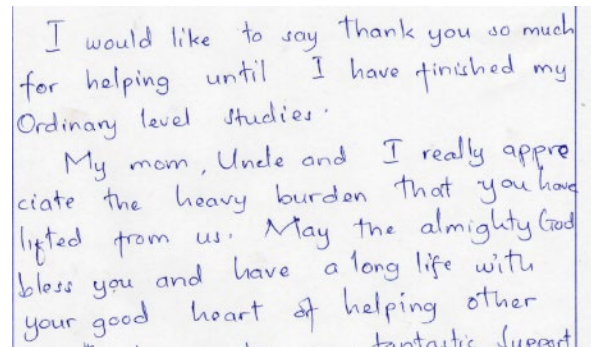 I would like to say thank you so much
for helping until I have finished my
Ordinary level studies.
My mom, Uncle and I really appre
ciate the heavy burden that you have
lifted from us. May the almighty God
bless you and have a long life with
your good heart of helping other
fantastic support